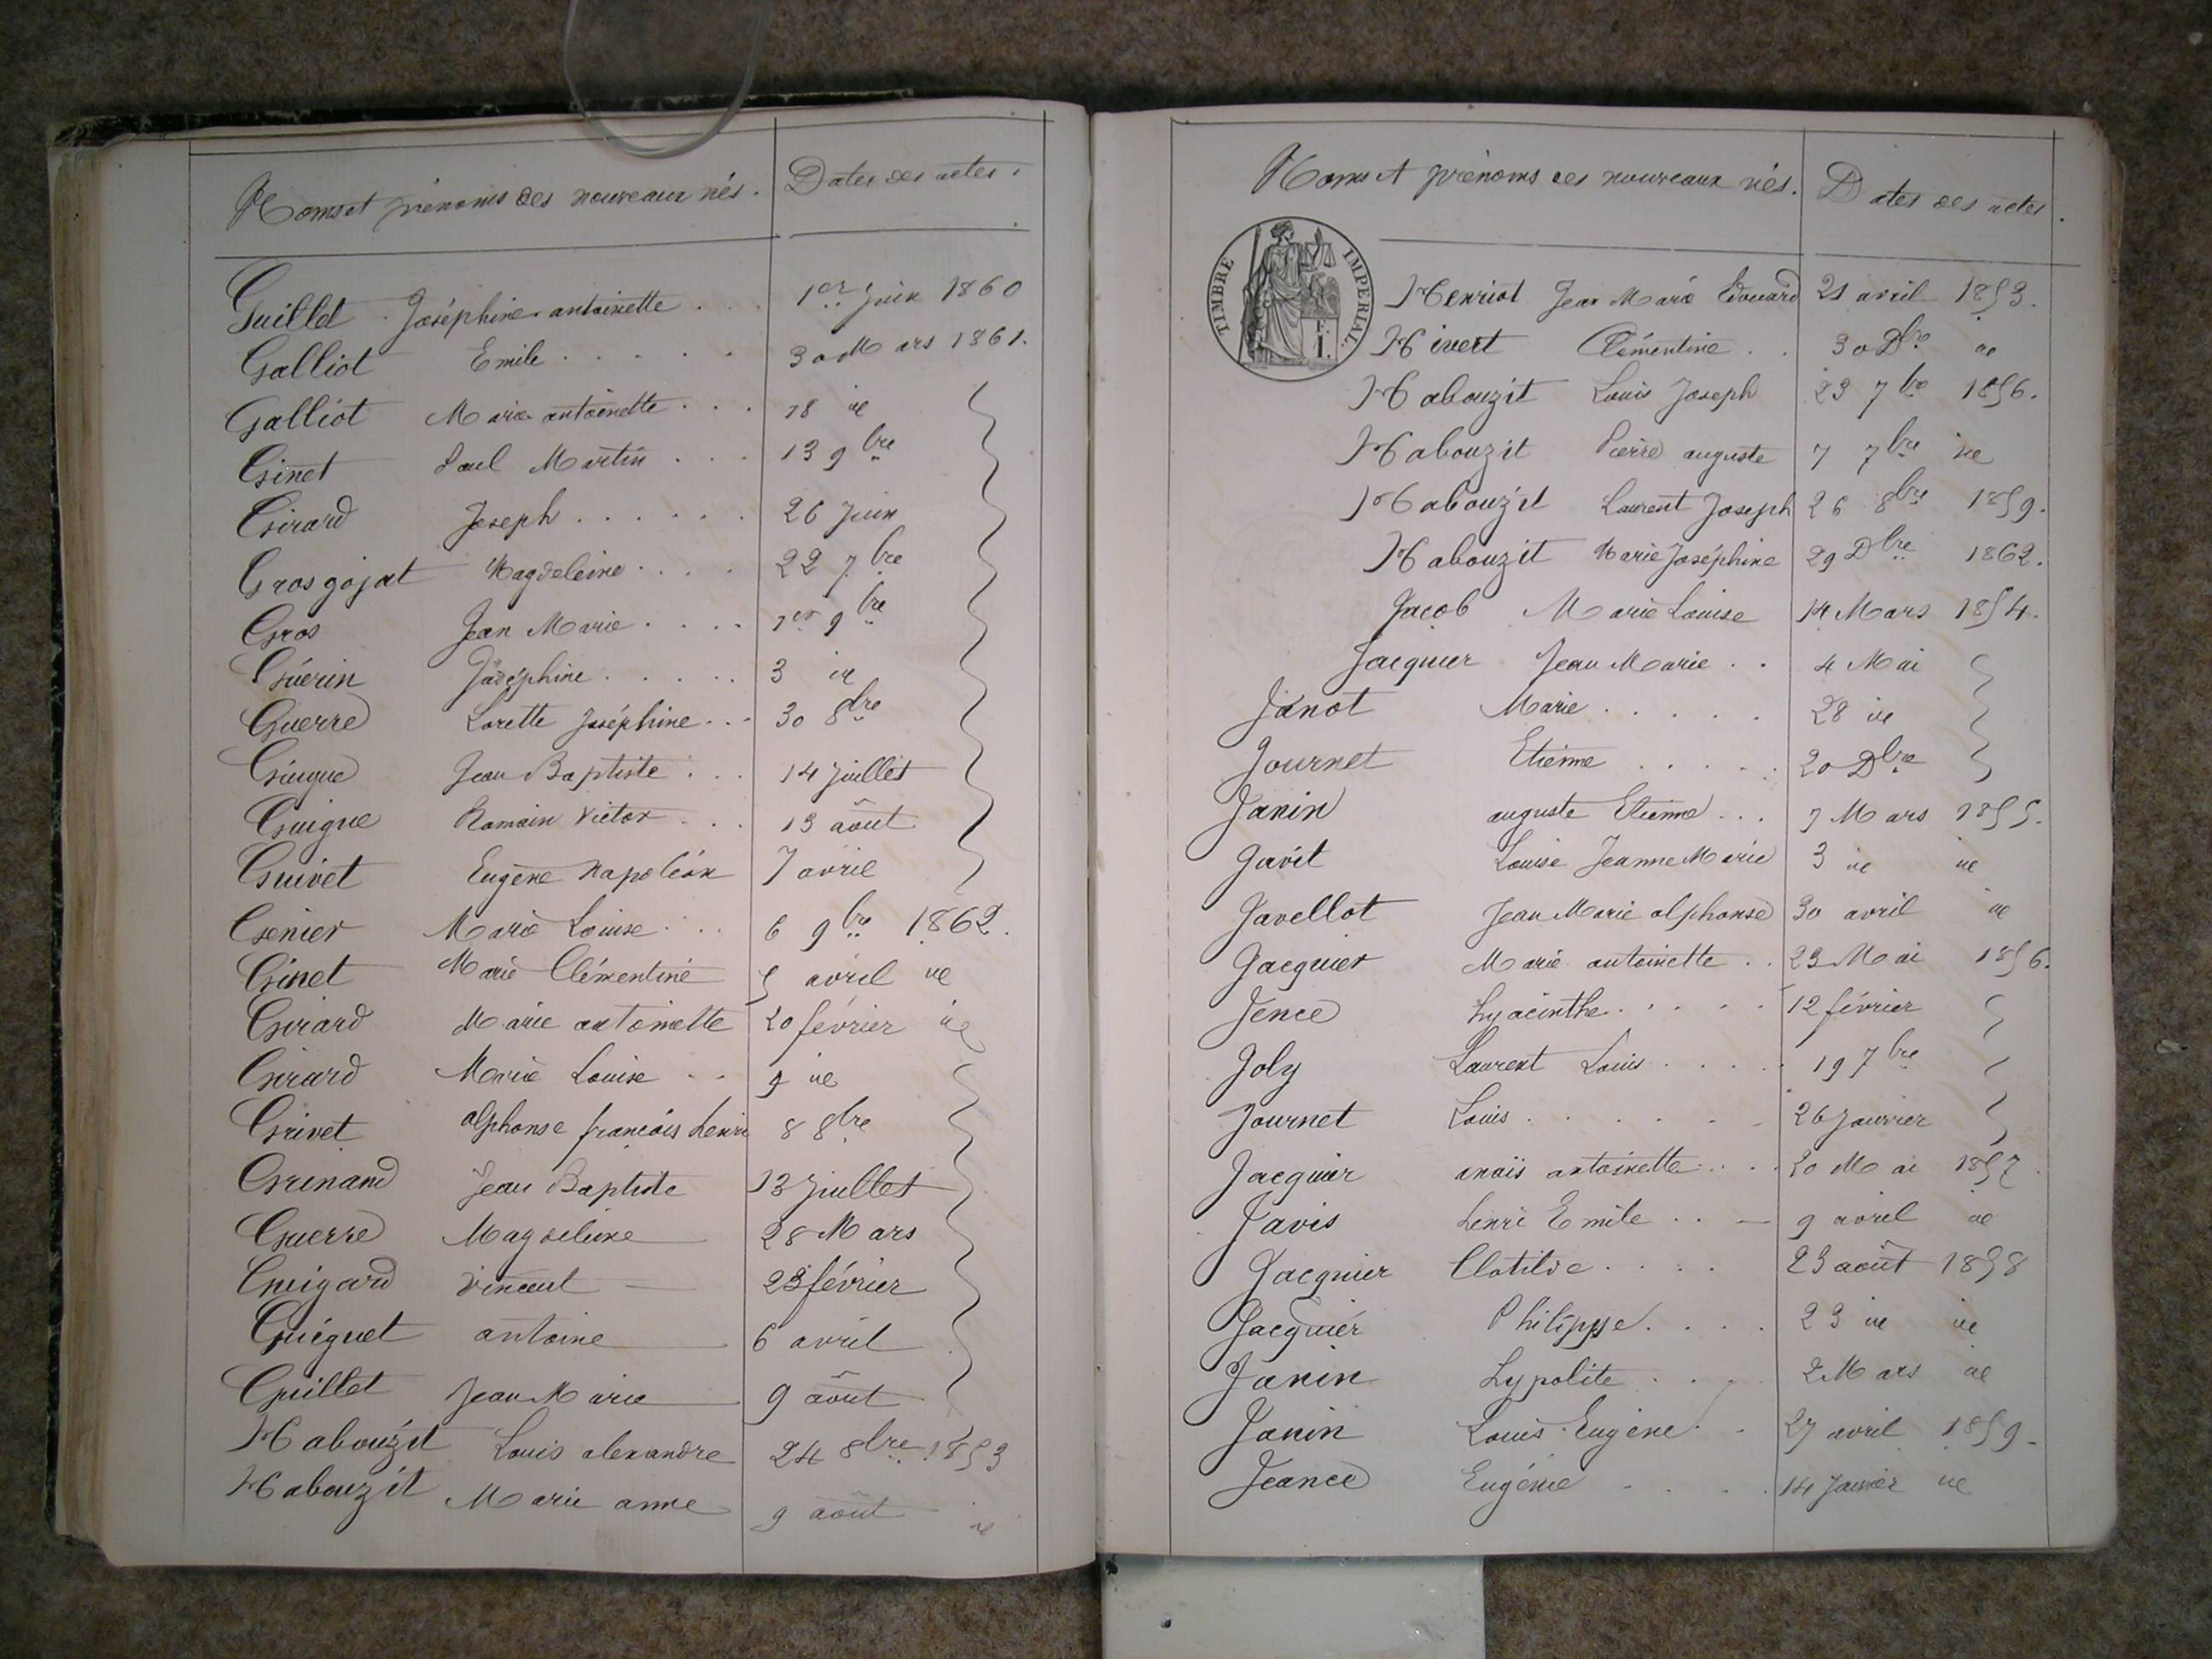 Noms et prénoms des nouveaux nés. Dates des actes.
Guillet Joséphine antoinette . . 1er Juin 1860
Galliot Emile . . . . . 30 Mars 1861.
Galliot Marie antoinette . . . 18 id
Ginet Paul Martin . . . 13 9bre
Girard Joseph . . . . . . 26 Juin
Gros gojat Magdeleine . . . . 22 7bre
Gros Jean Marie . . . . 1er 9bre
Guérin Joséphine . . . . . 3 id
Guerre Lorette Joséphine . . . 30 8bre
Guigue Jean Baptiste . . . 14 Juillet
Guigue Romain Victor . . . 13 août
Guivet Eugène Napoléon 7 avril
Genier Marie Louise . . . 6 9bre 1862.
Ginet Marie Clémentine 5 avril id
Girard Marie antoinette 20 février id
Girard Marie Louise . . 9 id
Grivet alphonse françois henri 8 8bre
Grenand Jean Baptiste 13 Juillet
Guerre Magdeleine 28 Mars
Guigard vincent 23 février
Guéguet antoine 6 avril
Guillet Jean Marie 9 août
Habouzit Louis alexandre 24 8bre 1853
Habouzit Marie anne 9 août id
Noms et prénoms des nouveaux nés. Dates des actes.
TIMBRE IMPERIAL.
Henriot Jean Marie Edouard 21 avril 1853.
Hivert Clémentine . . 30 Dbre id
Habouzit Louis Joseph 23 7bre 1856.
Habouzit Pierre auguste 7 7bre id
Habouzit Laurent Joseph 26 8bre 1859.
Habouzit Marie Joséphine 29 Dbre 1862.
Jacob Marie Louise 14 Mars 1854.
Jacquier Jean Marie . . 4 Mai
Janot Marie . . . . . 28 id
Journet Etienne . . . . . 20 Dbre
Janin auguste Etienne . . . 7 Mars 1855.
Javit Louise Jeanne Marie 3 id id
Javellot Jean Marie alphonse 30 avril id
Jacquier Marie antoinette . . 23 Mai 1856.
Jence hyacinthe . . . . . 12 février
Joly Laurent Louis . . . . . 19 7bre
Journet Louis . . . . . . 26 Janvier
Jacquier anaïs antoinette . . . . 20 Mai 1857.
Javis henri Emile . . — 9 avril id
Jacquier Clotilde . . . . 23 août 1858
Jacquier Philippe . . . . 23 id id
Janin hypolite . . . 2 Mars id
Janin Louis Eugène . . 27 avril 1859.
Jeance Eugénie . . . . 14 Janvier id